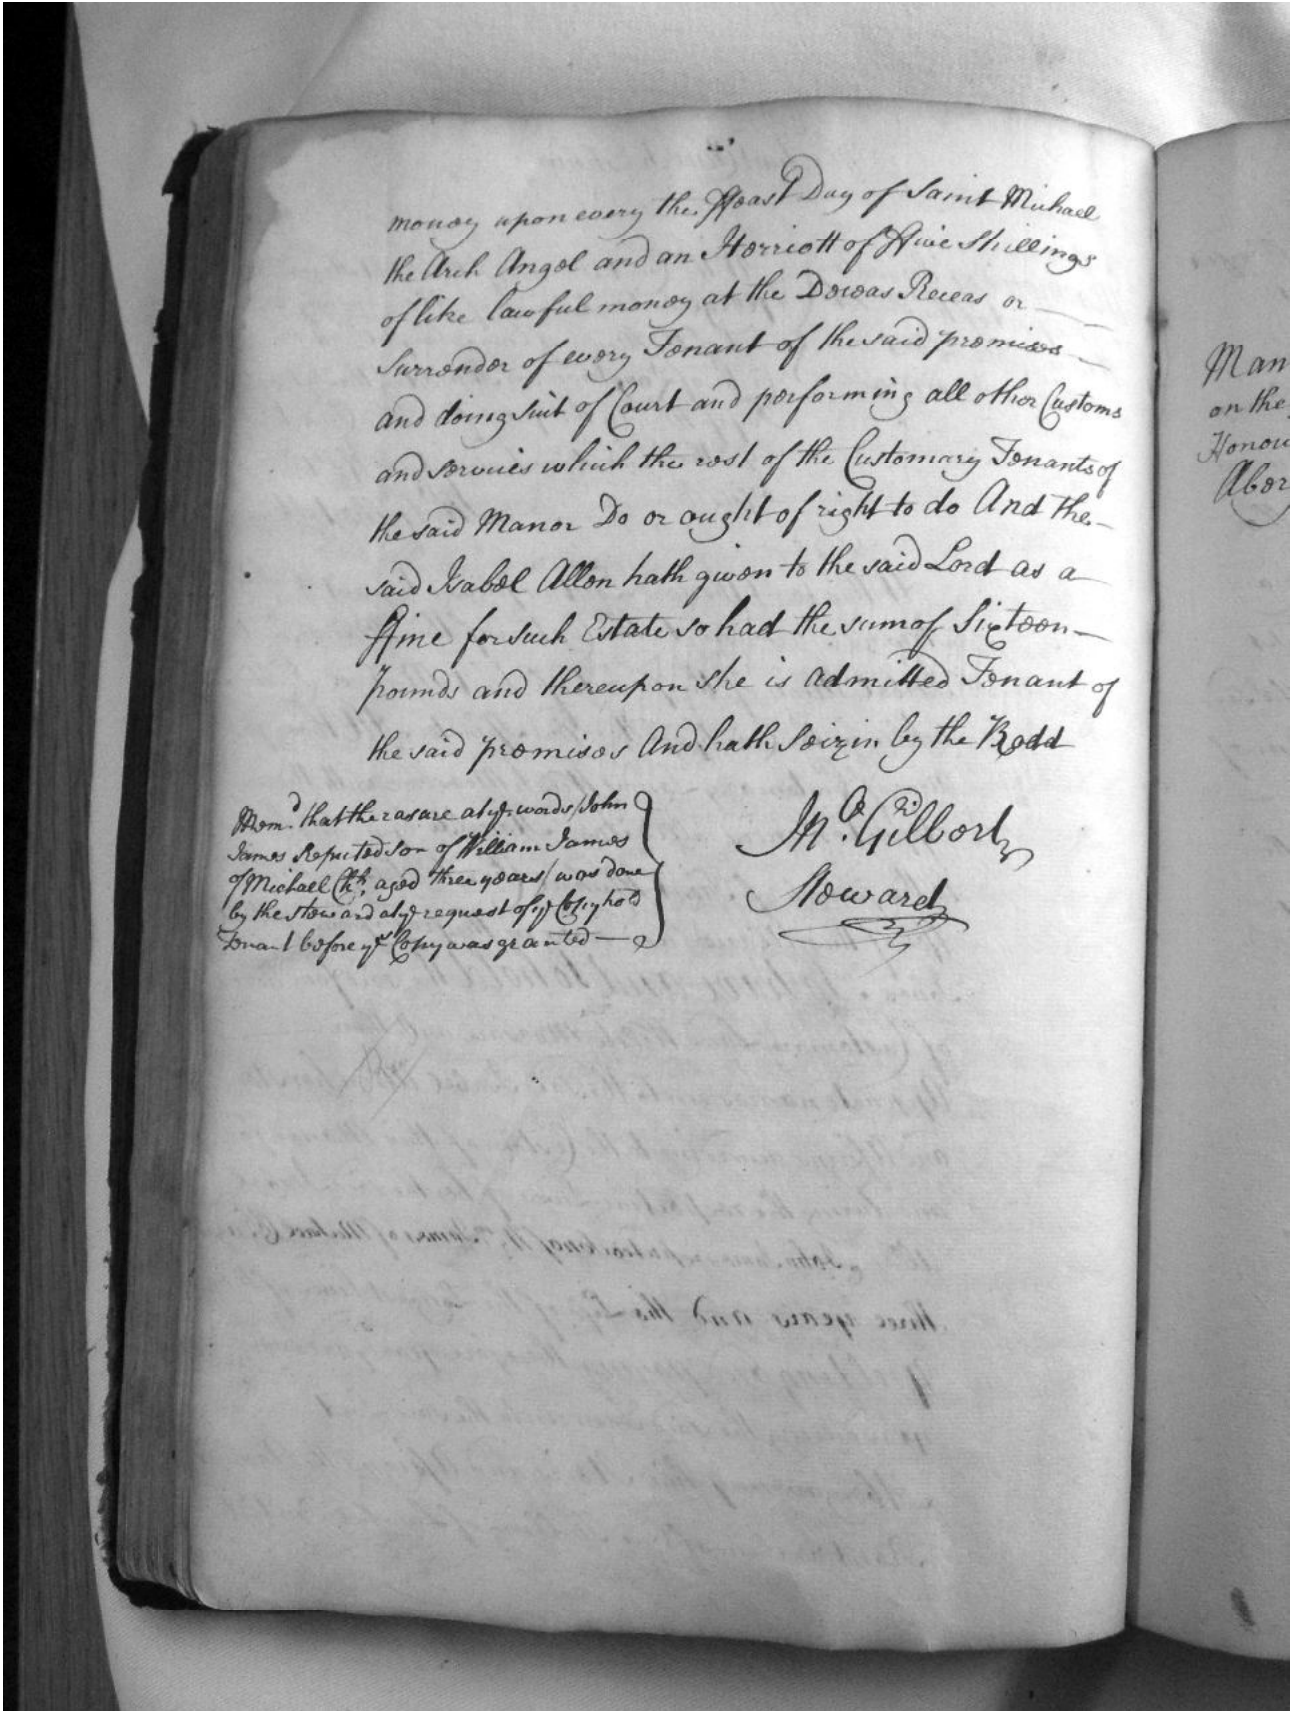 money upon every the ffeast Day of Saint Michael
the Arch Angel and an Herriott of ffive Shillings
of like lawful money at the Deceas Reueas or
Surrender of every Tenant of the said premises
and doing Suit of Court and performing all other Customs
and services which the rest of the Customary Tenants of
the said Manor Do or ought of right to do And the
said Isabel Allen hath given to the said Lord as a
ffine for such Estate so had the sum of Sixteen
pounds and thereupon she is admitted Tenant of
the said premises And hath Seizin by the Rodd
Memd. that the rasure at ye. words / John
James Reputed son of William James
of Michael Ch: aged three years / was done
by the Steward at ye request of ye Copyhold
Tenant before ye Copy was granted
Gilbert
Steward
Man
on the
Honou
Aber